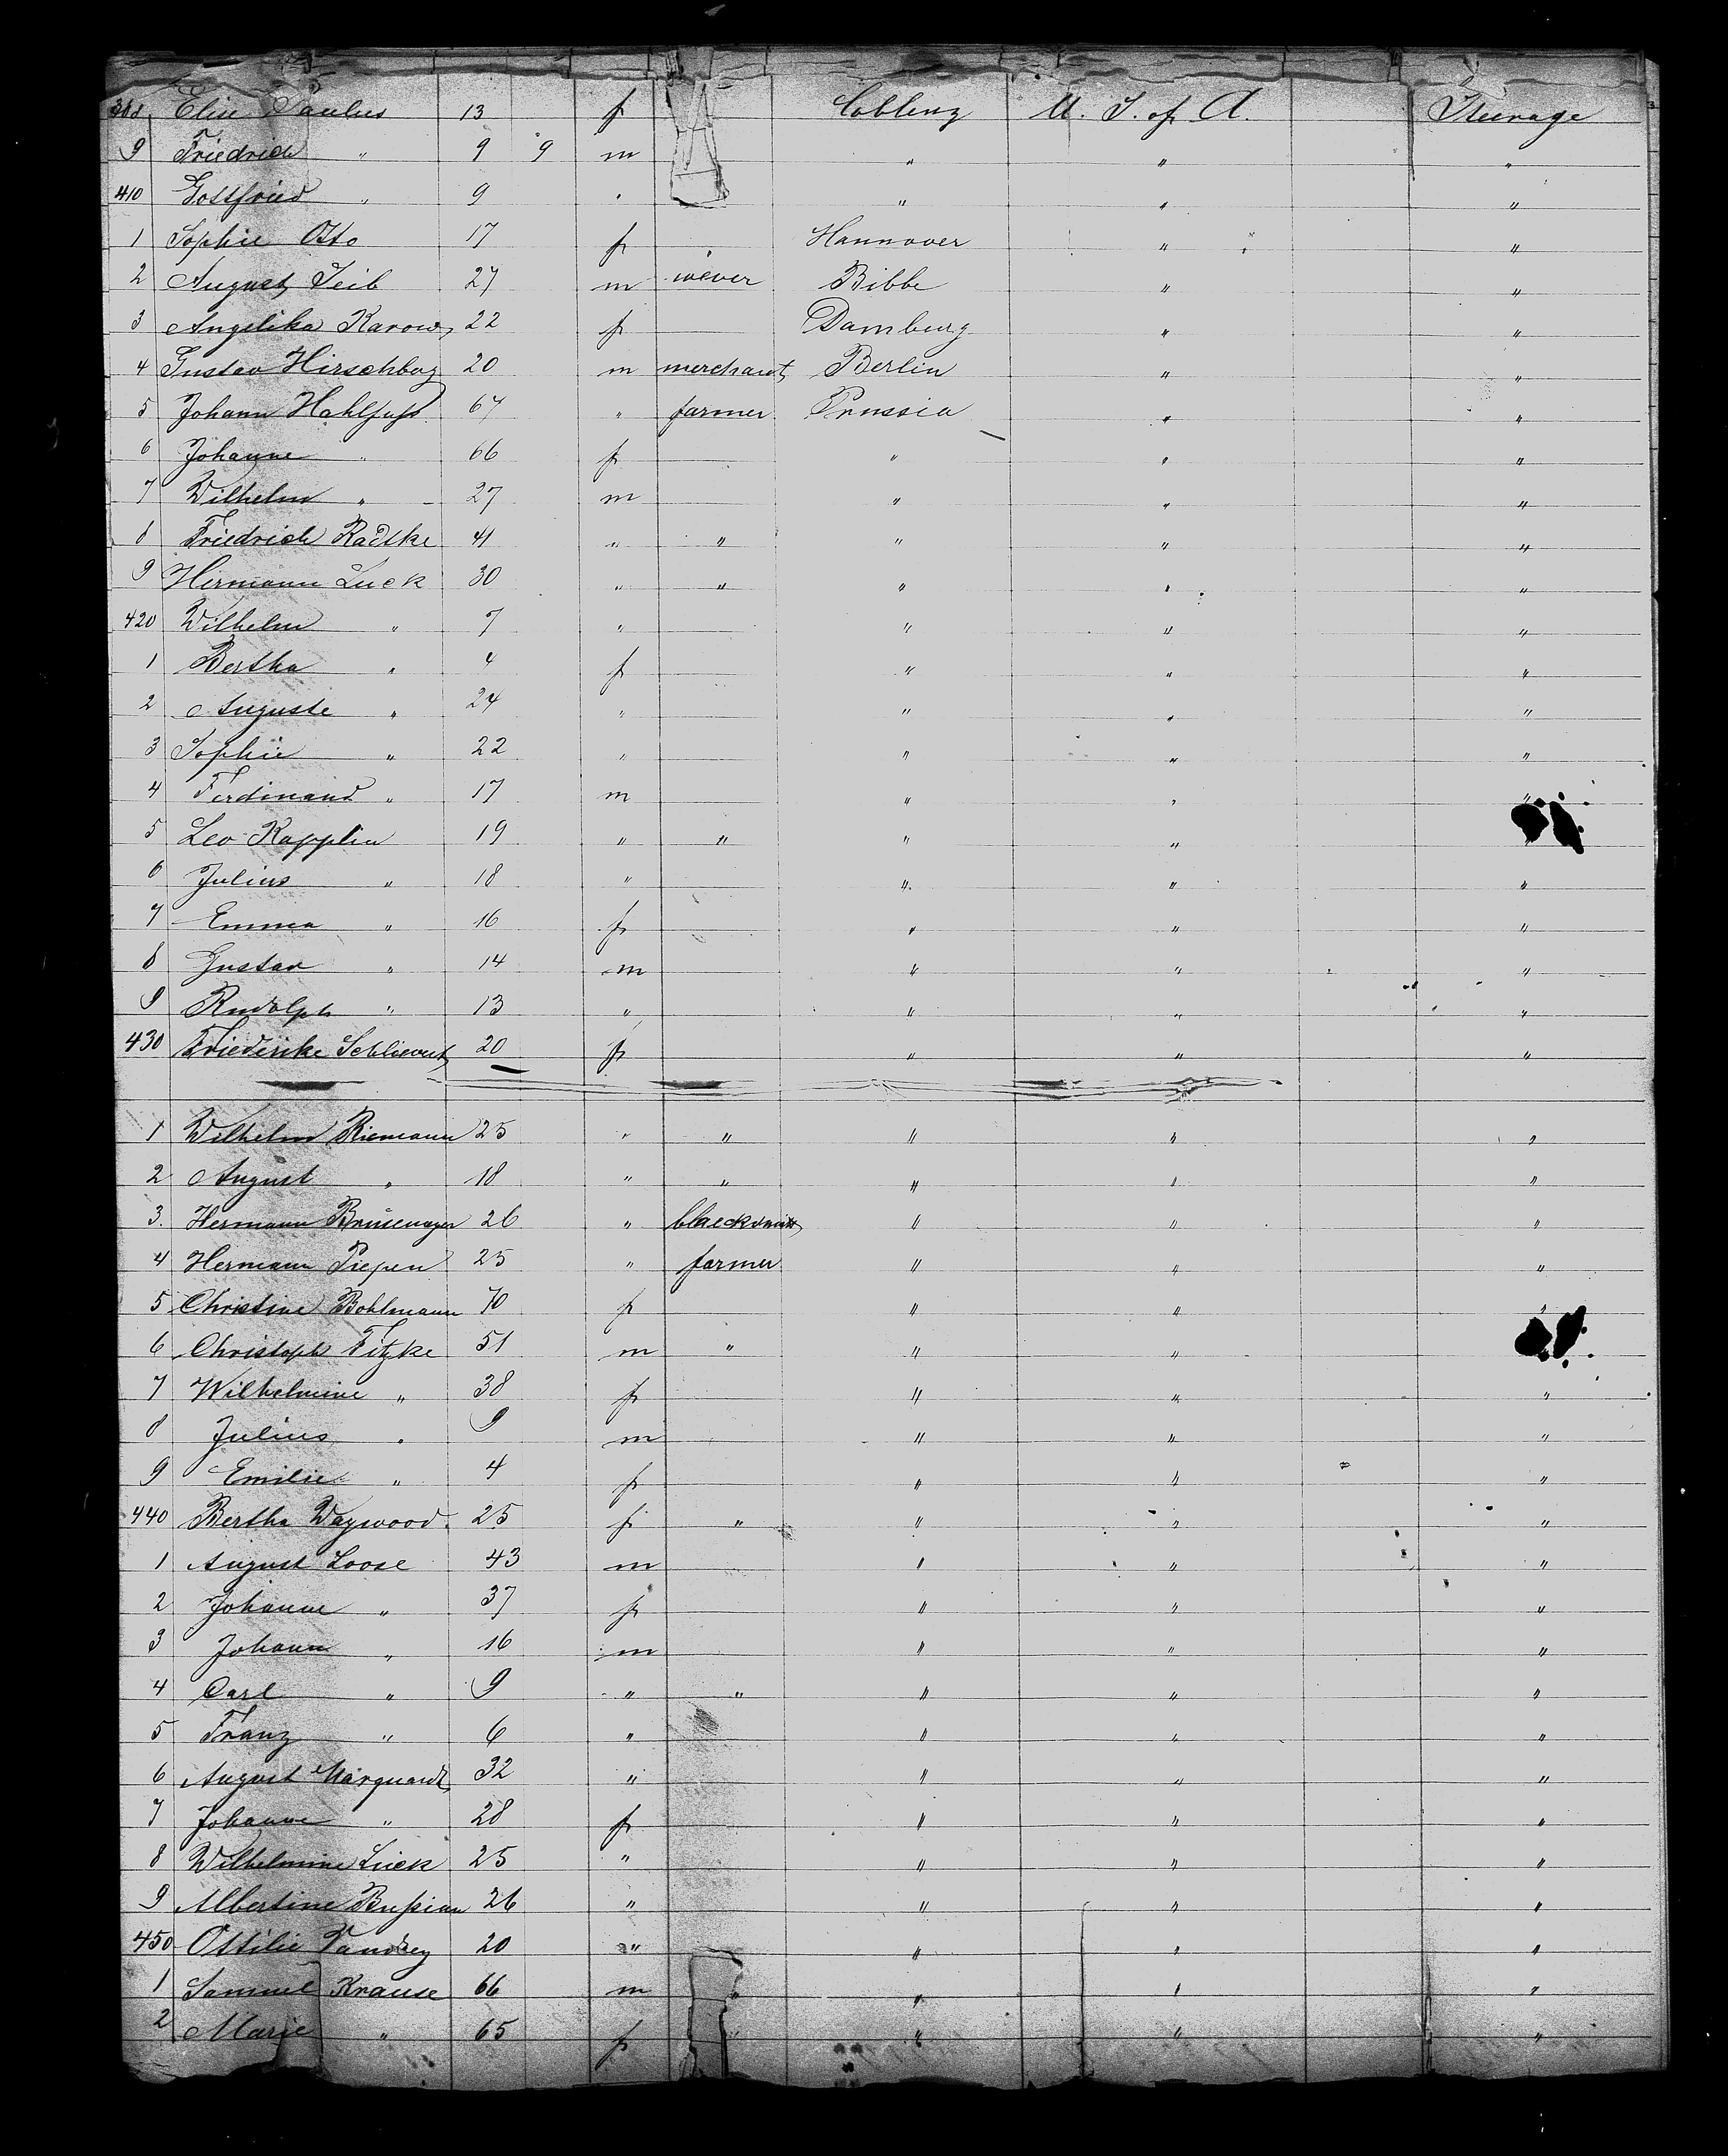 408 Elise Paulus 13 f Coblenz U. S. of A. Steerage
9 Friedrich " 9 9 m " " "
410 Gottfried " 9 " " " "
1 Sophie Otto 17 f " Hannover " "
2 August Seib 27 m wever Bibbe " "
3 Angelika Karow 22 f Damburg " "
4 Gustav Hirschbog 20 m merchant Berlin " "
5 Johann 67 " farmer Prussia " "
6 Johanne " 66 f " " "
7 Wilhelm " 27 m " " "
8 Friedrich Radtke 41 " " " " "
9 Hermann Luck 30 " " " " "
420 Wilhelm " 7 " " " "
1 Bertha " 4 f " " "
2 Auguste " 24 " " " "
3 Sophie " 22 " " " "
4 Ferdinand " 17 m " " "
5 Leo Kapplin 19 " " " " "
6 Julius " 18 " " " "
7 Emma " 16 f " " "
8 Gustav " 14 m " " "
9 Rudolph " 13 " " " "
430 Friederike Schlievert 20 f " " "
1 Wilhelm Riemann 25 " " " " "
2 August " 18 " " " " "
3. Hermann 26 " blacksmith " " "
4 Hermann Piepen 25 " farmer " " "
5 Christine Bohlmann 70 f " " "
6 Christoph Fitzke 51 m " " " "
7 Wilhelmine " 38 f " " "
8 Julius " 9 m " " "
9 Emilie " 4 f " " "
440 Bertha Waywood 25 f " " " "
1 August Loose 43 m " " "
2 Johanne " 37 f " " "
3 Johann " 16 m " " "
4 Carl " 9 " " " " "
5 Franz " 6 " " " "
6 August Marquardt 32 " " " "
7 Johanne " 28 f " " "
8 Wilhelmine Lück 25 " " " "
9 Albertine Bußian 26 " " " "
450 Ottilie Tandrey 20 " " " "
1 Samuel Krause 66 m " " " "
2 Marie " 65 f " " " "